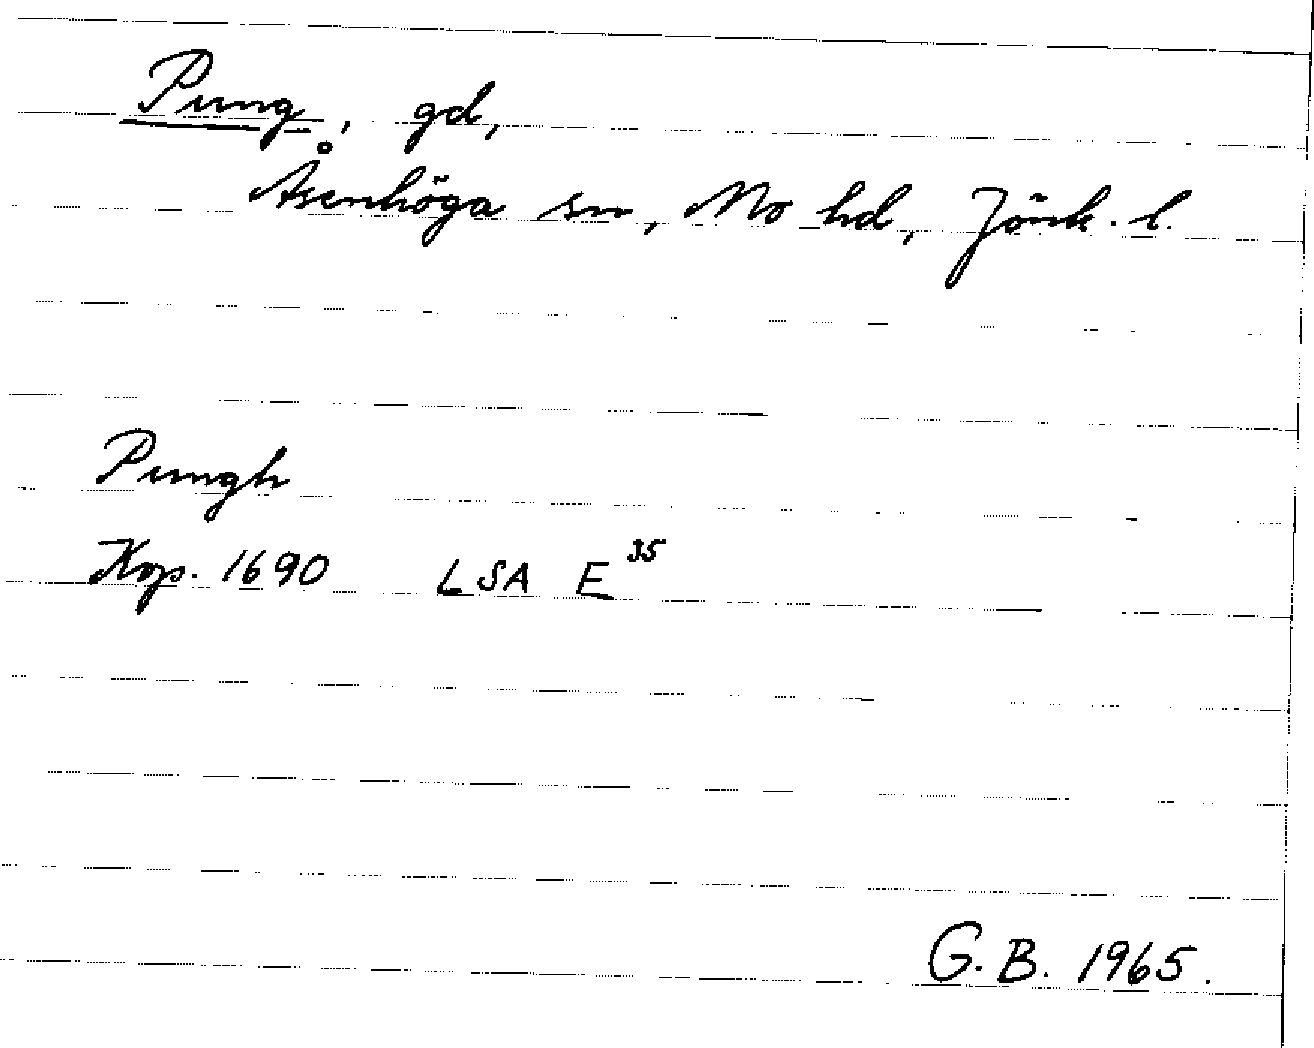 Pung, gd,
Åsenhöga sn, Mo hd, Jönk. l.
Pungh
Kop. 1690 LSA E 35
G. B. 1965.